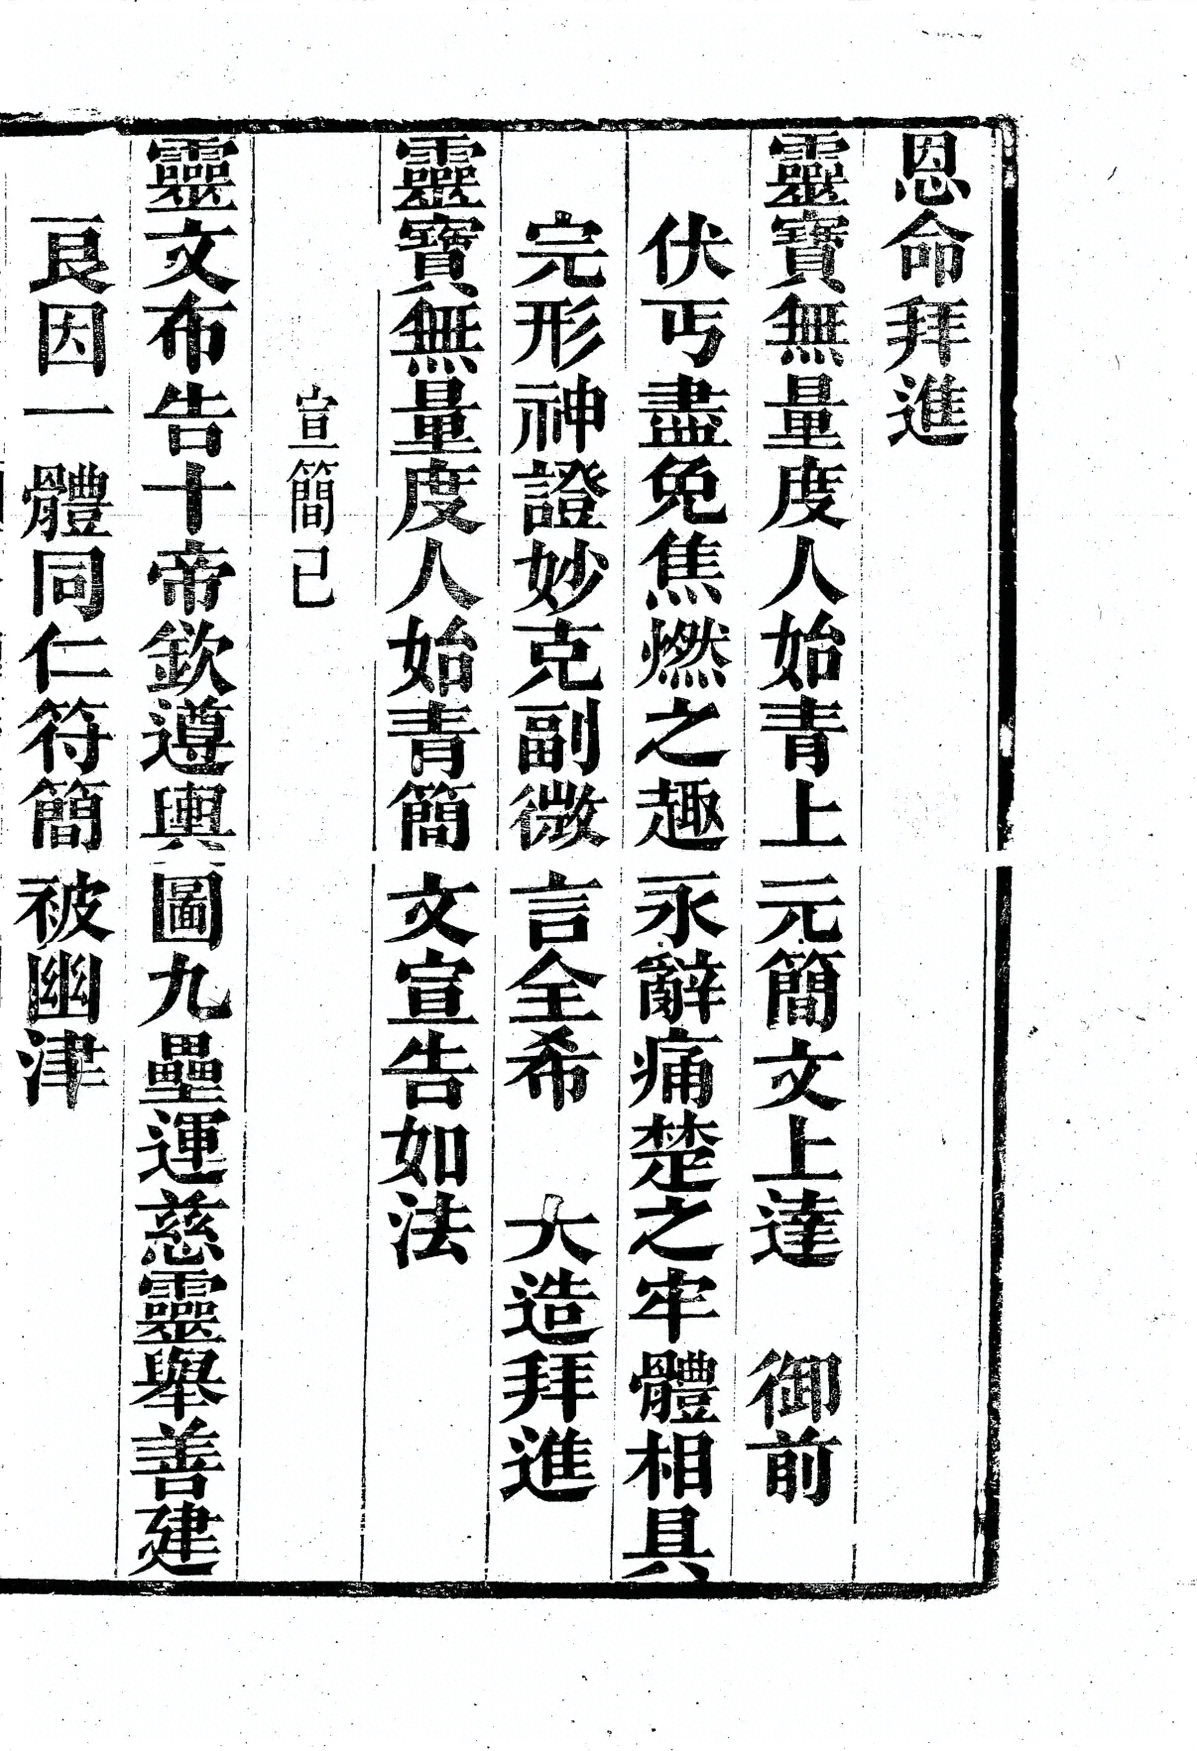 恩命拜進
靈寶無量度人始青上元簡文上達　御前
伏丐盡免焦燃之趣永辭痛楚之牢體相具
完形神證妙克副微言全希　大造拜進
靈寶無量度人始青簡文宣告如法
宣簡已
靈文布告十帝欽遵輿圖九壘運慈靈舉善建
良因一體同仁符簡被幽津